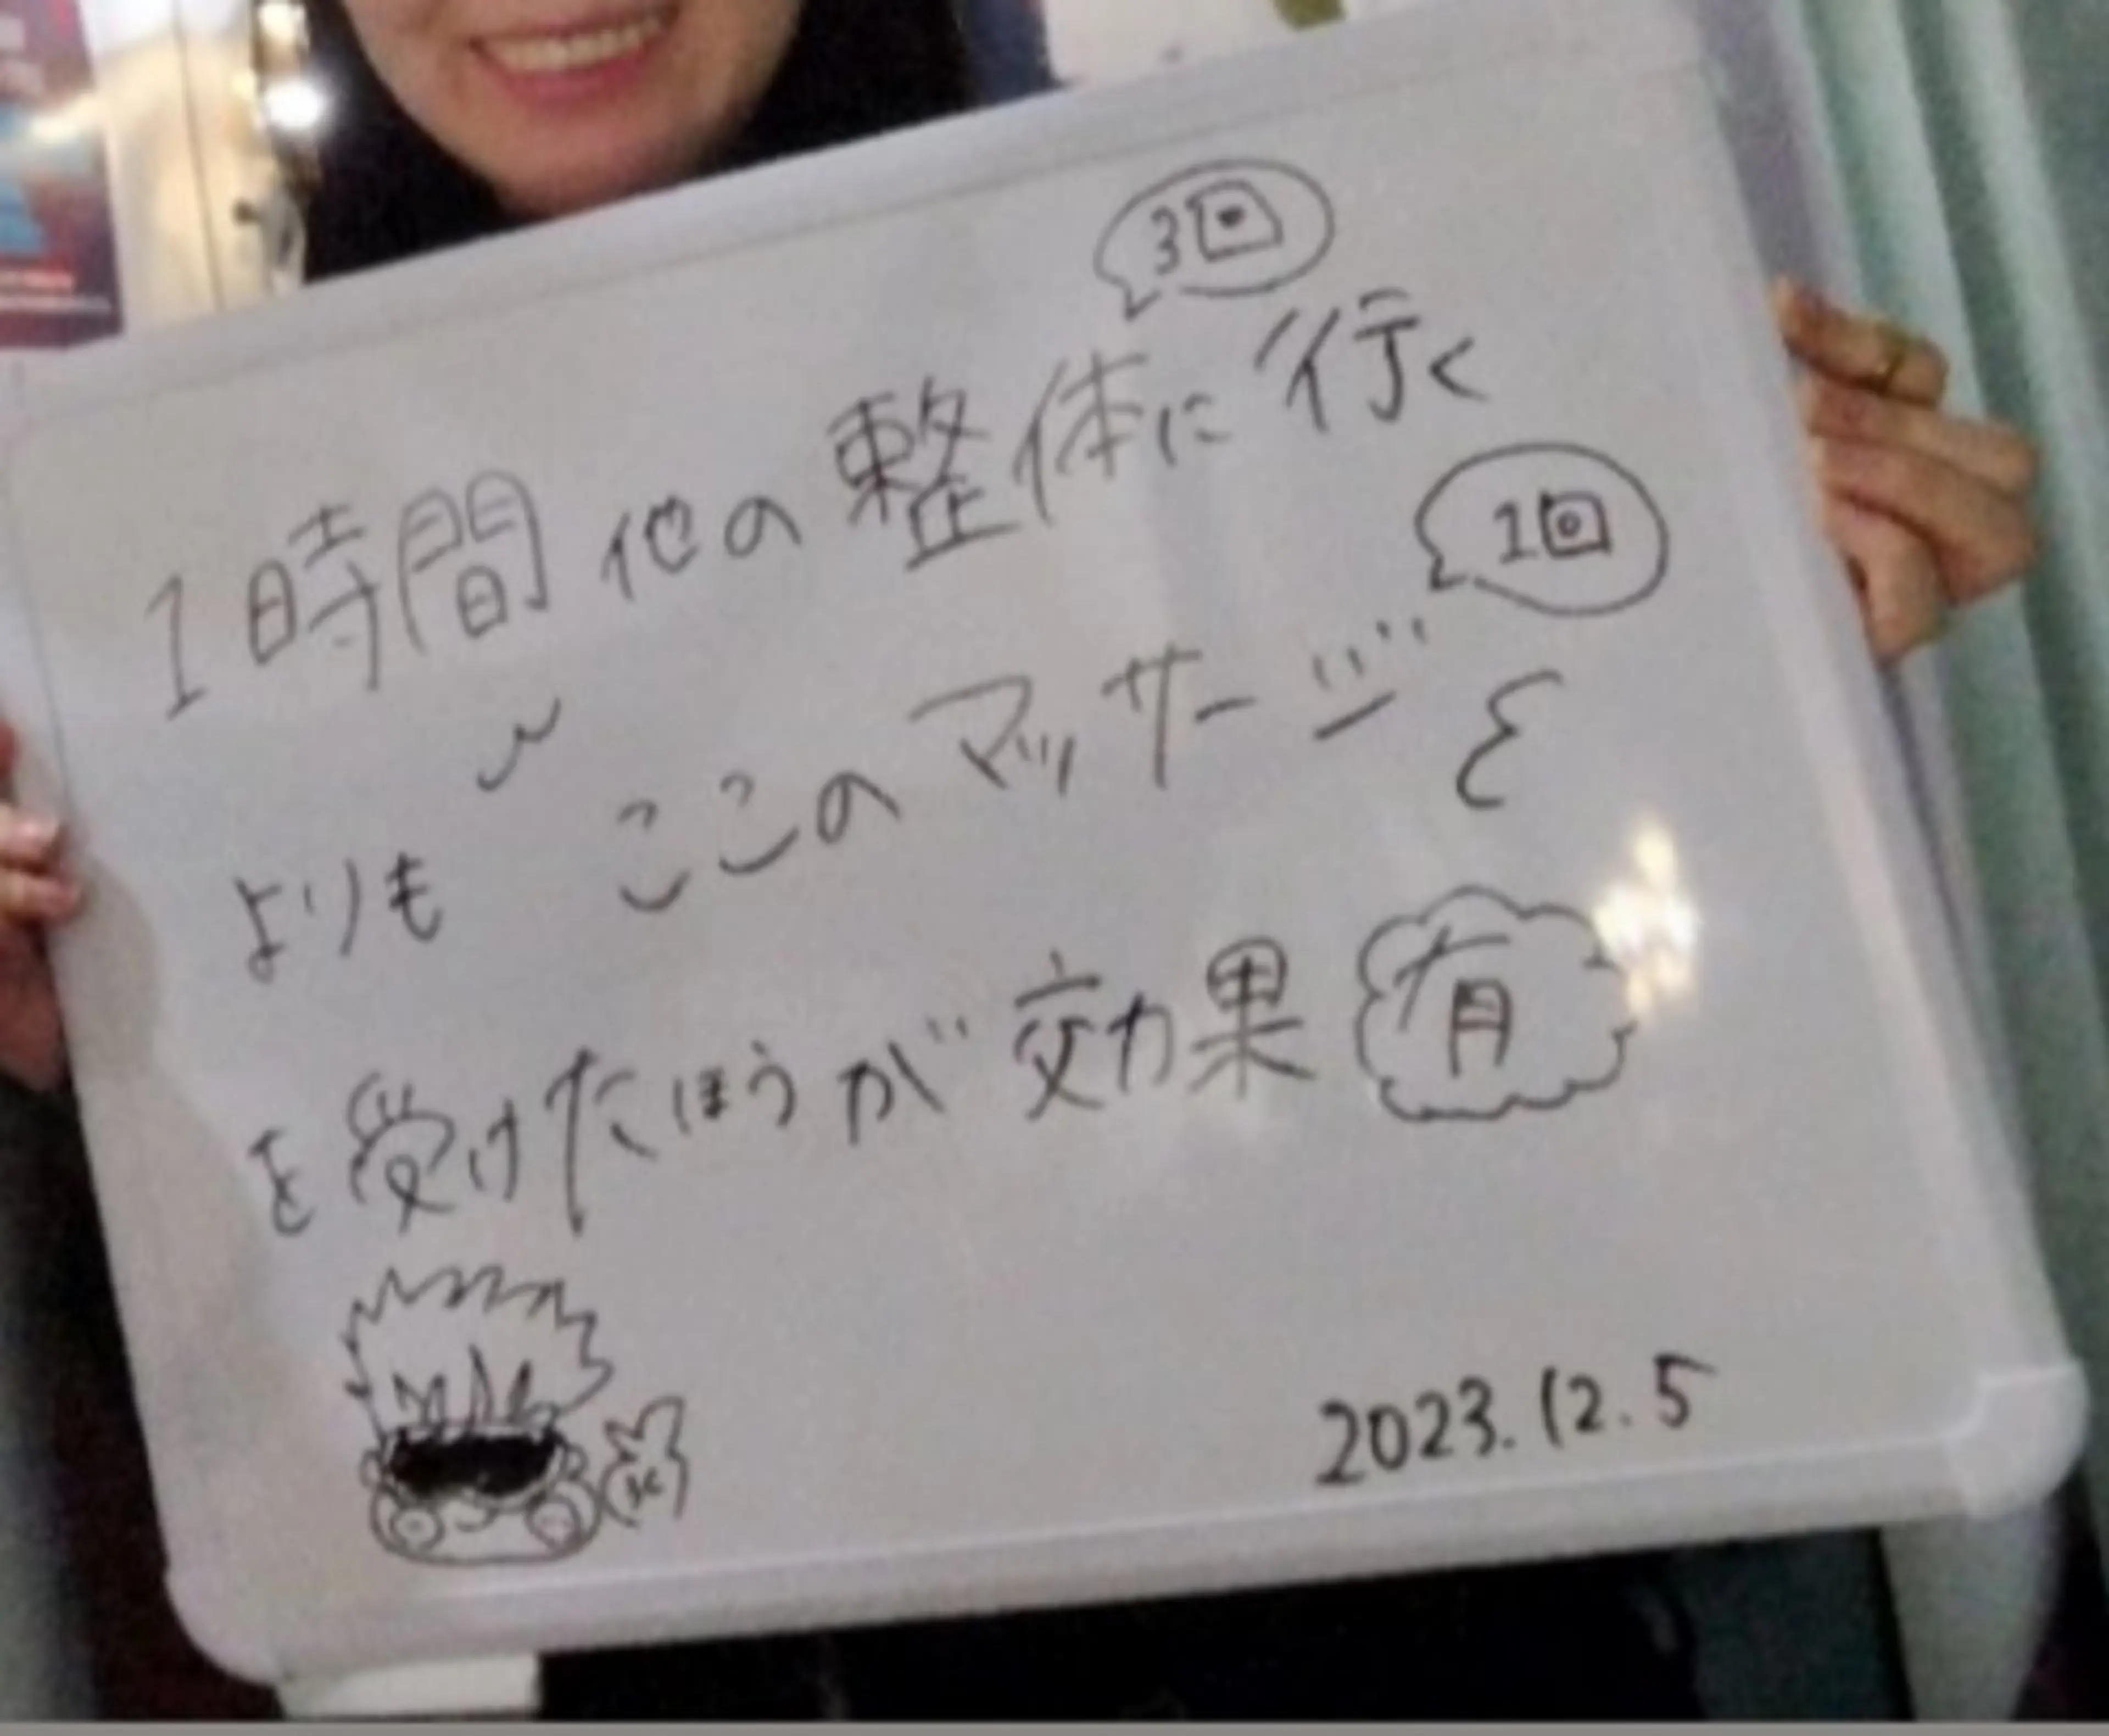 3回
1時間他の整体に行く
1回
よりも ここのマッサージ
を受けたほうが効果有
2023.12.5